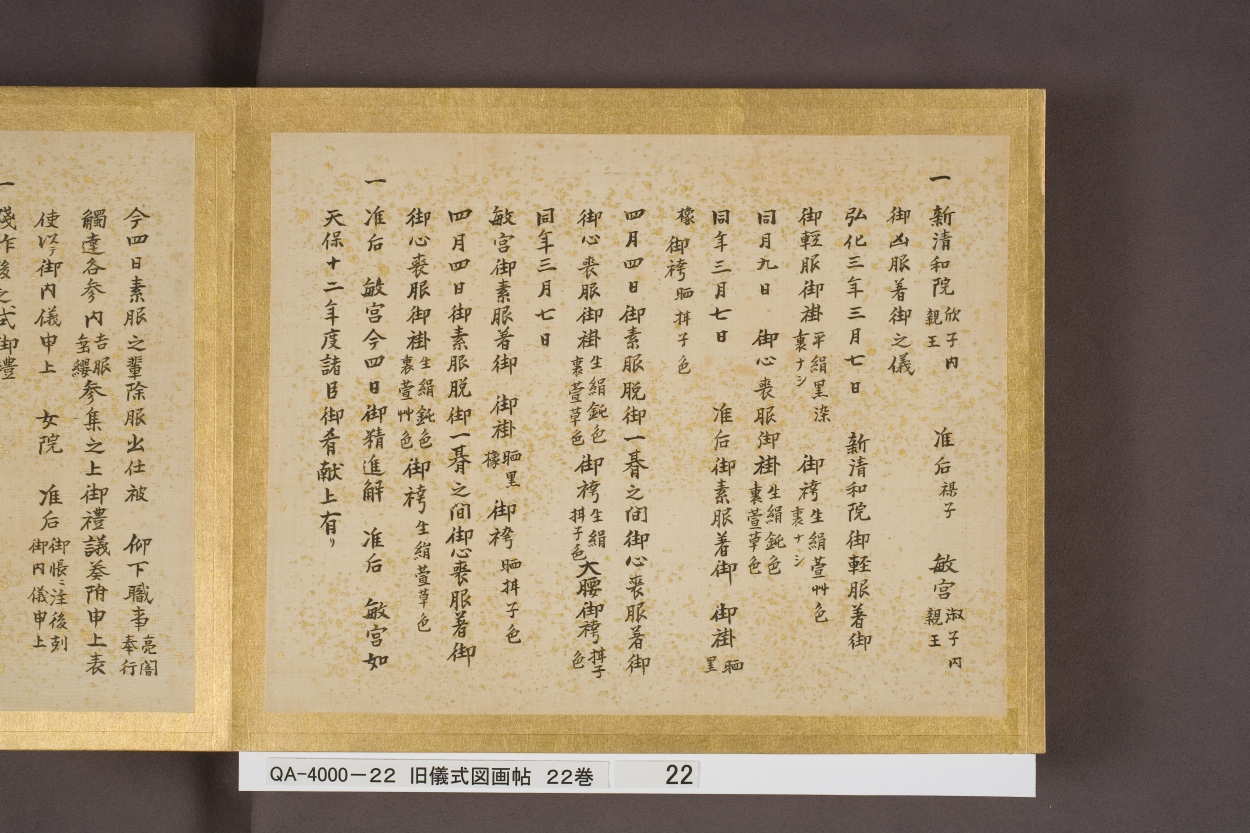 一 新清和院欣子内親王 准后禖子 敏宮淑子内親王
御凶服著御之儀
弘化三年三月七日 新清和院御軽服著御
御輕服御褂平絹黒染裏ナシ 御袴生絹萱艸色裏ナシ
同月九日 御心喪服御褂生絹鈍色裏萱草色
同年三月七日 准后御素服著御 御褂晒黒
橡御袴晒柑子色
四月四日御素服脱御一朞之间御心喪服著御
御心喪服御褂生絹鈍色裏萱草色御袴生絹柑子色大腰御袴柑子色
同年三月七日
敏宮御素服著御 御褂晒黒橡 御袴晒柑子色
四月四日御素服脱御一朞之間御心喪服著御
御心喪服御褂生絹鈍色裏萱艸色御袴生絹萱草色
一 准后 敏宮今四日御精進解 准后 敏宮如
天保十二年度諸臣御肴献上有リ
今四日素服之輩除服出仕被 仰下職事亮闇奉行
觸達各参内吉服垂纓参集之上御禮議奏附申上表
使以テ御内儀申上 女院 准后御帳ニ注後刻御内儀申上
一
後之式御禮
QA-4000-22 旧儀式図画帖 22巻 22